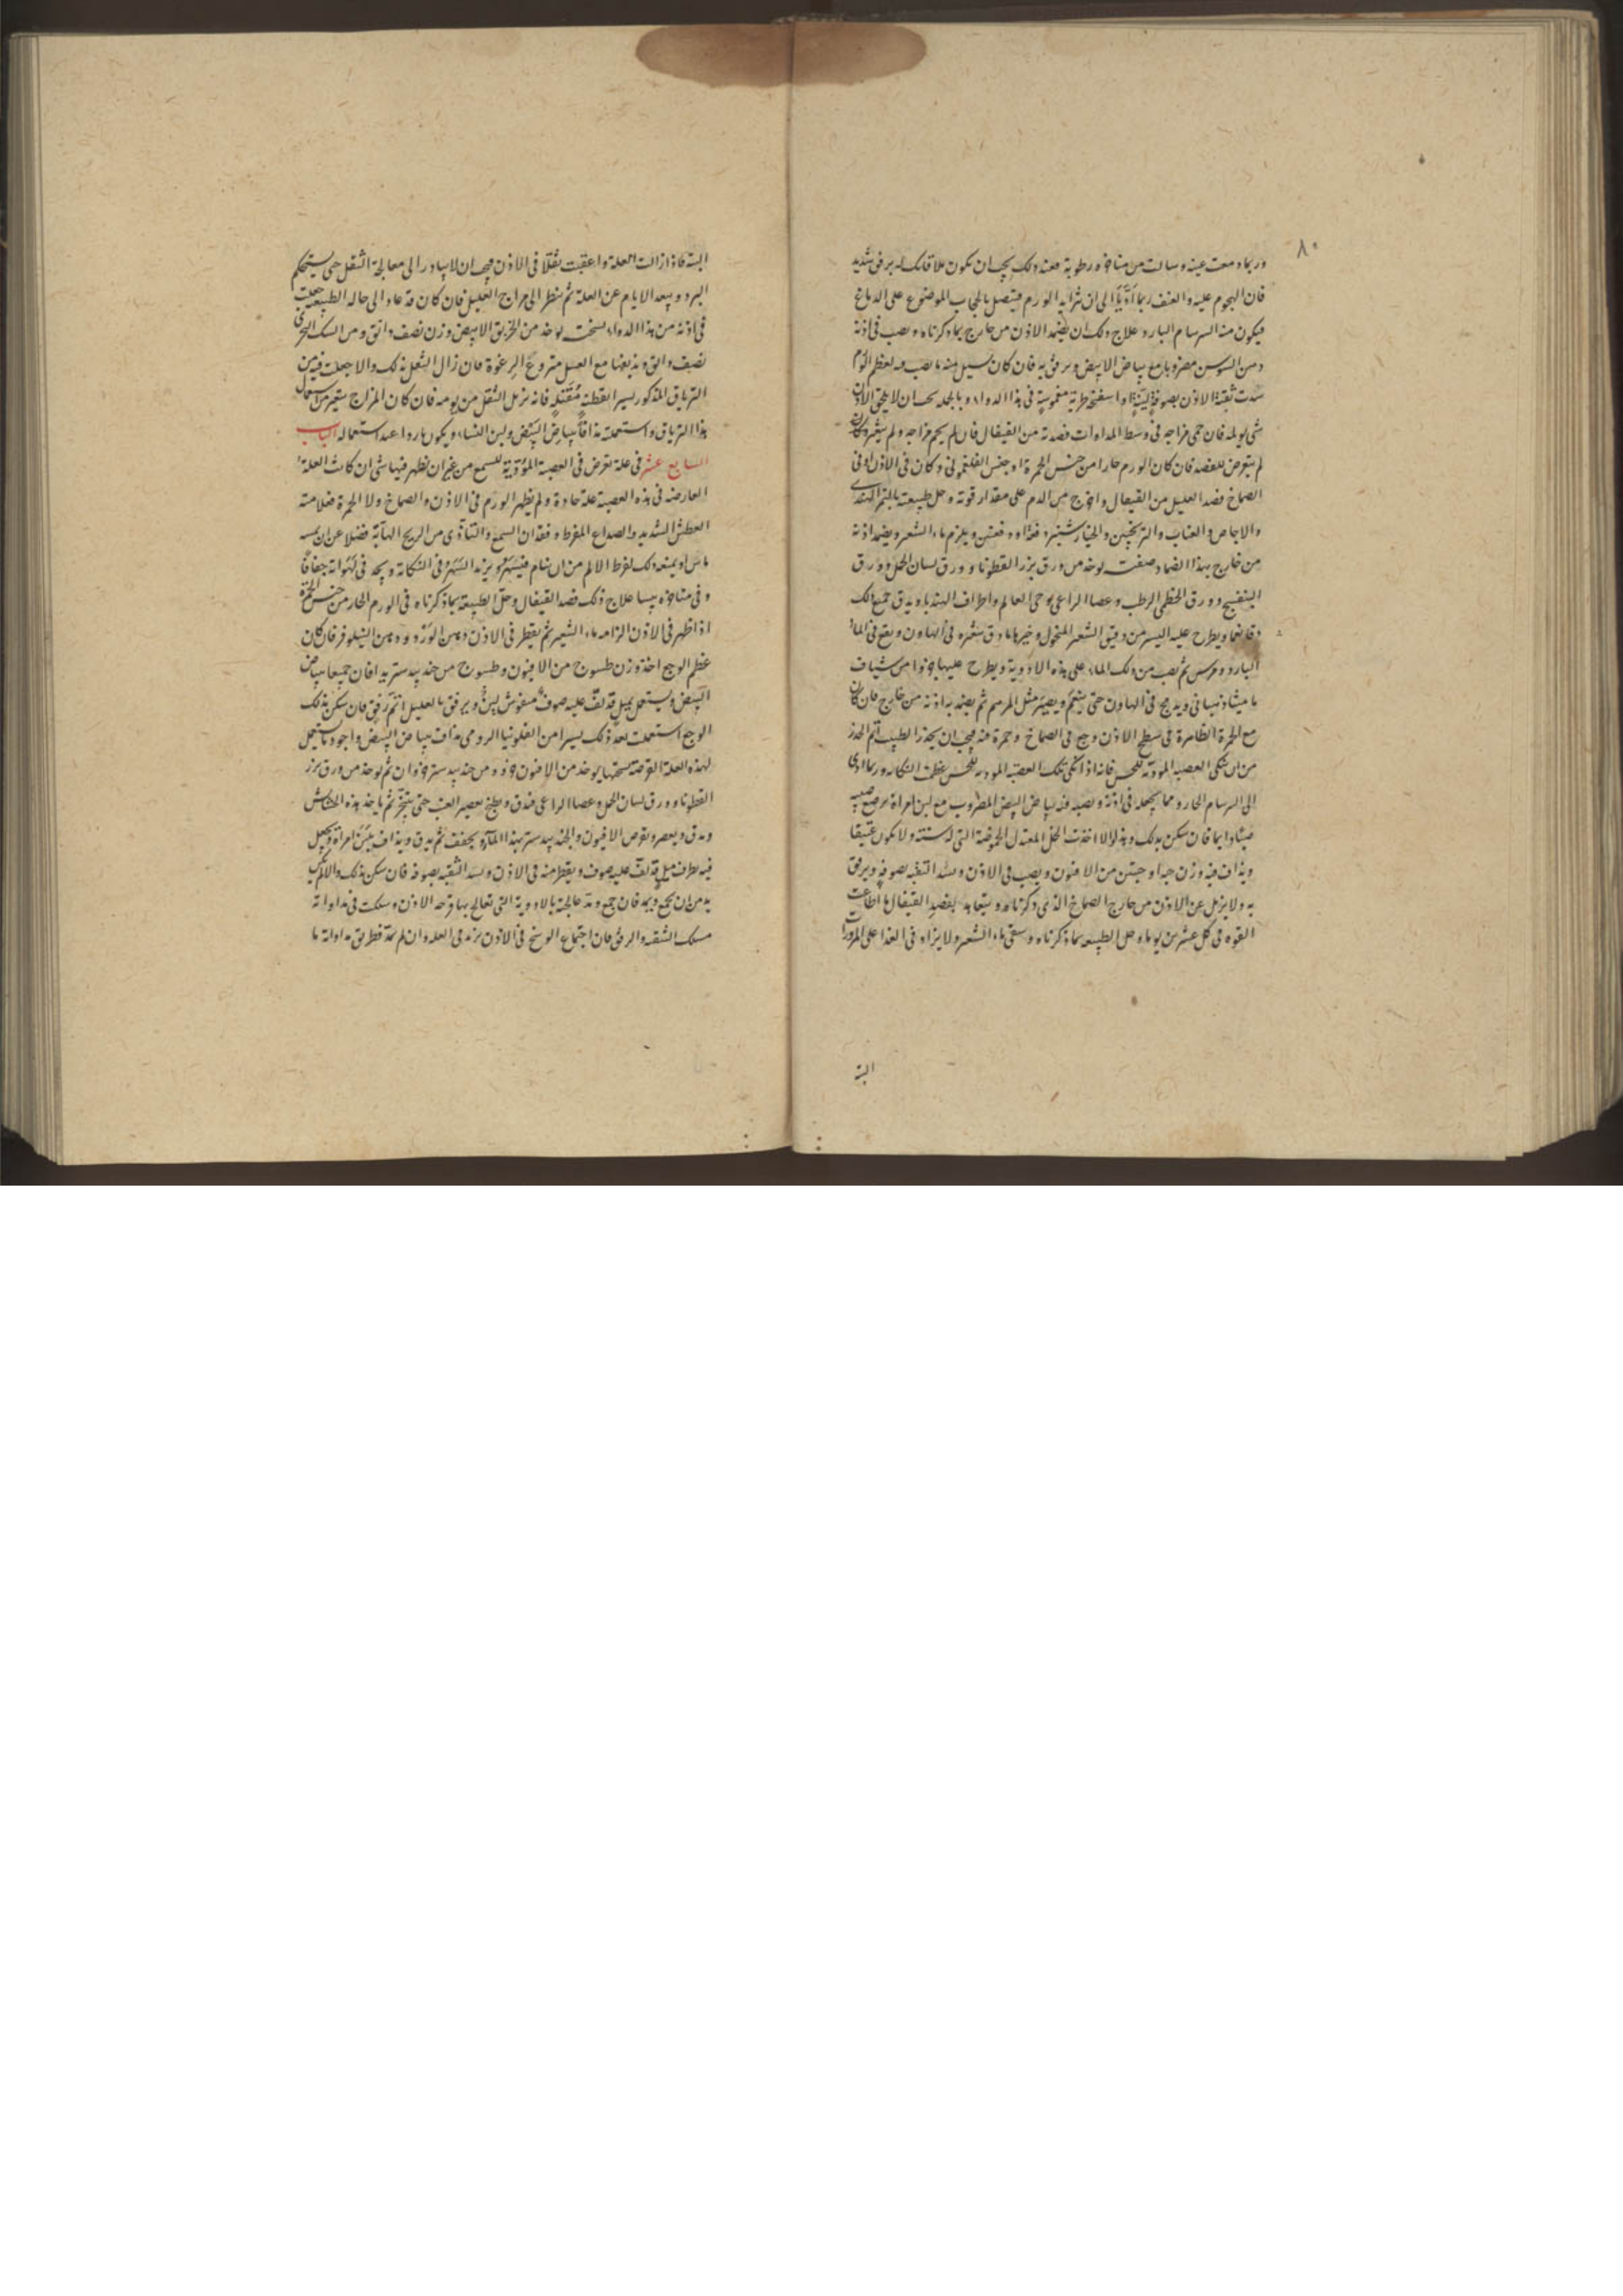 ٨٠
وربما دمعت عينه وسالت من مناخره رطوبة فعند ذلك يجب ان يكون ملاقاتك له برفق شديد
فان الهجوم عليه والعنف ربما ادّيا الى ان يتزايد الورم فيتصل بالحجاب الموضوع على الدماغ
فيكون منه السرسام البارد علاج ذلك ان يضمد الاذن من خارج بما ذكرناه ويصب في اذنه
دهن السوسن مضروبا مع بياض البيض ويرفق به فان كان يسيل منه ما يصب فيه لعظم الورم
سدت ثقبة الاذن بصوفة لينة او اسفنجة طرية مغموسة في هذا الدواء وبالجملة يجب ان لا يلحق الاذن
شي يولمه فان حمى مزاجه في وسط المداوات فصدته من القيفال فان لم يحم مزاجه ولم يتغير وكان
لم يتعرض للفصد فان كان الورم حارا من جنس الحمرة او جنس الفلغموني وكان في الاذن او في
الصماخ فصد العليل من القيفال واخرج من الدم على مقدار قوته وحل طبيعته بالتمر الهندي
والاجاص والعناب والترنجبين والخيارشنبر دفعة او دفعتين ويلزم ماء الشعير ويضمد اذنه
من خارج بهذا الضماد صفته يوخذ من ورق بزر القطونا وورق لسان الحمل وورق
البنفسج وورق الخطمي الرطب وعصا الراعي وحي العالم واطراف الهندبا ويدق جميع ذلك
دقا ناعما ويطرح عليه اليسير من دقيق الشعير المنخول وخيرها ما دق شعيره في الهاون ونقع في الماء
البارد ومرس ثم يصب من ذلك الماء على هذه الادوية ويطرح عليها جزوا من شياف
ماميثا ونيساني ويدبج في الهاون حتى ينعم ويصير مثل المرهم ثم يضمد به اذنه من خارج فان كان
مع الحمرة الظاهرة في سطح الاذن وجع في الصماخ وحمرة فيه فيجب ان يحذر الطبيب اتم الحذر
من ان ينكي العصبة المودية للحس فانه اذا انكى تلك العصبة المودية للحس عظمت النكاية وربما ادى
الى السرسام الحار ومما يجعله في اذنه ويصبه فيه بياض البيض المضروب مع لبن امراة مرضع صبيه
صبا دايما فان سكن بذلك والا اخذت الخل المعتدل الحموضة التي له سنة ولا يكون عتيقا
ويداف فيه وزن حبة او حبتين من الافيون ويصب في الاذن ويسد الثقبة بصوفة ويرفق
به ولا يزيل عن الاذن من خارج الضماد الذي ذكرناه ويتعاهد بفصد القيفال ما اطاعت
القوه في كل عشرين يوما وحل الطبيعة بما ذكرناه وسقي ماء الشعير ولا يزاد في الغذا على المزورا
البتة
البتة فاذا زالت العلة واعقبت ثقلا في الاذن فيجب ان لا يبادر الى معالجة الثقل حتى يستحكم
البرو ويبعد الايام عن العلة ثم ينظر الى مزاج العليل فان كان قد عاد الى حاله الطبيعي جعلت
في اذنه من هذا الدواء نسخته يوخذ من الخربق الابيض وزن نصف دانق ومن السك البحري
نصف دانق ويديفهما مع العسل منزوع الرغوة فان زال الثقل بذلك والا جعلت فيه من
الترياق المذكور يسيرا بقطنة مفتلة فانه يزيل الثقل من يومه فان كان المزاج يتغير من استعمال
هذا الترياق واستعملته مدافا ببياض البيض ولبن النساء ويكون باردا عند استعماله الباب
السابع عشر في علة تعرض في العصبة المؤدية للسمع من غير ان يظهر فيها شي ان كانت العلة
العارضه في هذه العصبة علة حادة ولم يظهر الورم في الاذن والصماخ ولا الحمرة فعلامته
العطش الشديد والصداع المفرط وفقدان السمع والتأذي من الريح الهابة فضلا عن ان يمسه
ماس او يمنعه ذلك لفرط الالم من ان ينام فيسهر ويزيد السهر في النكاية ويجد في لهواته جفافا
وفي مناخره يبسا علاج ذلك فصد القيفال وحل الطبيعة بما ذكرناه في الورم الحار من جنس الحمرة
اذا ظهر في الاذن الزامه ماء الشعير ثم يقطر في الاذن دهن الورد ودهن النيلوفر فان كان
عظم الوجع اخذ وزن طسوج من الافيون وطسوج من جندبيدستر يدافان جميعا ببياض
البيض ويستعمل بميل قد لف عليه صوف منفوش لين ويرفق بالعليل اتم رفق فان سكن بذلك
الوجع استعملت بعد ذلك يسيرا من الفلونيا الرومي مداف ببياض البيض واجود ما يستعمل
لهذه العلة القرصة نسختها يوخذ من الافيون جزو ومن جندبيدستر جزوان ثم يوخذ من ورق بزر
القطونا وورق لسان الحمل وعصا الراعي فيدق ويطبخ بعصير العنب حتى يتهرى ثم ياخذ هذه الحشايش
ويدق ويعصر ويقرص الافيون والجندبيدستر بهذا الماء ويجفف ثم يدق ويداف بلبن امراة ويجعل
فيه بطرف ميل قد لف عليه صوف ويقطر منه في الاذن ويسد الثقبة بصوفه فان سكن بذلك والا لم يكن
بد من ان يجمع ويمد فان جمع ومد عالجته بالادوية التي تعالج بها قرحه الاذن وسلكت في مداواته
مسلك الشفقة والرفق فان اجتماع الوسخ في الاذن يزيد في العلة وان لم يمد فطريق مداواته ما